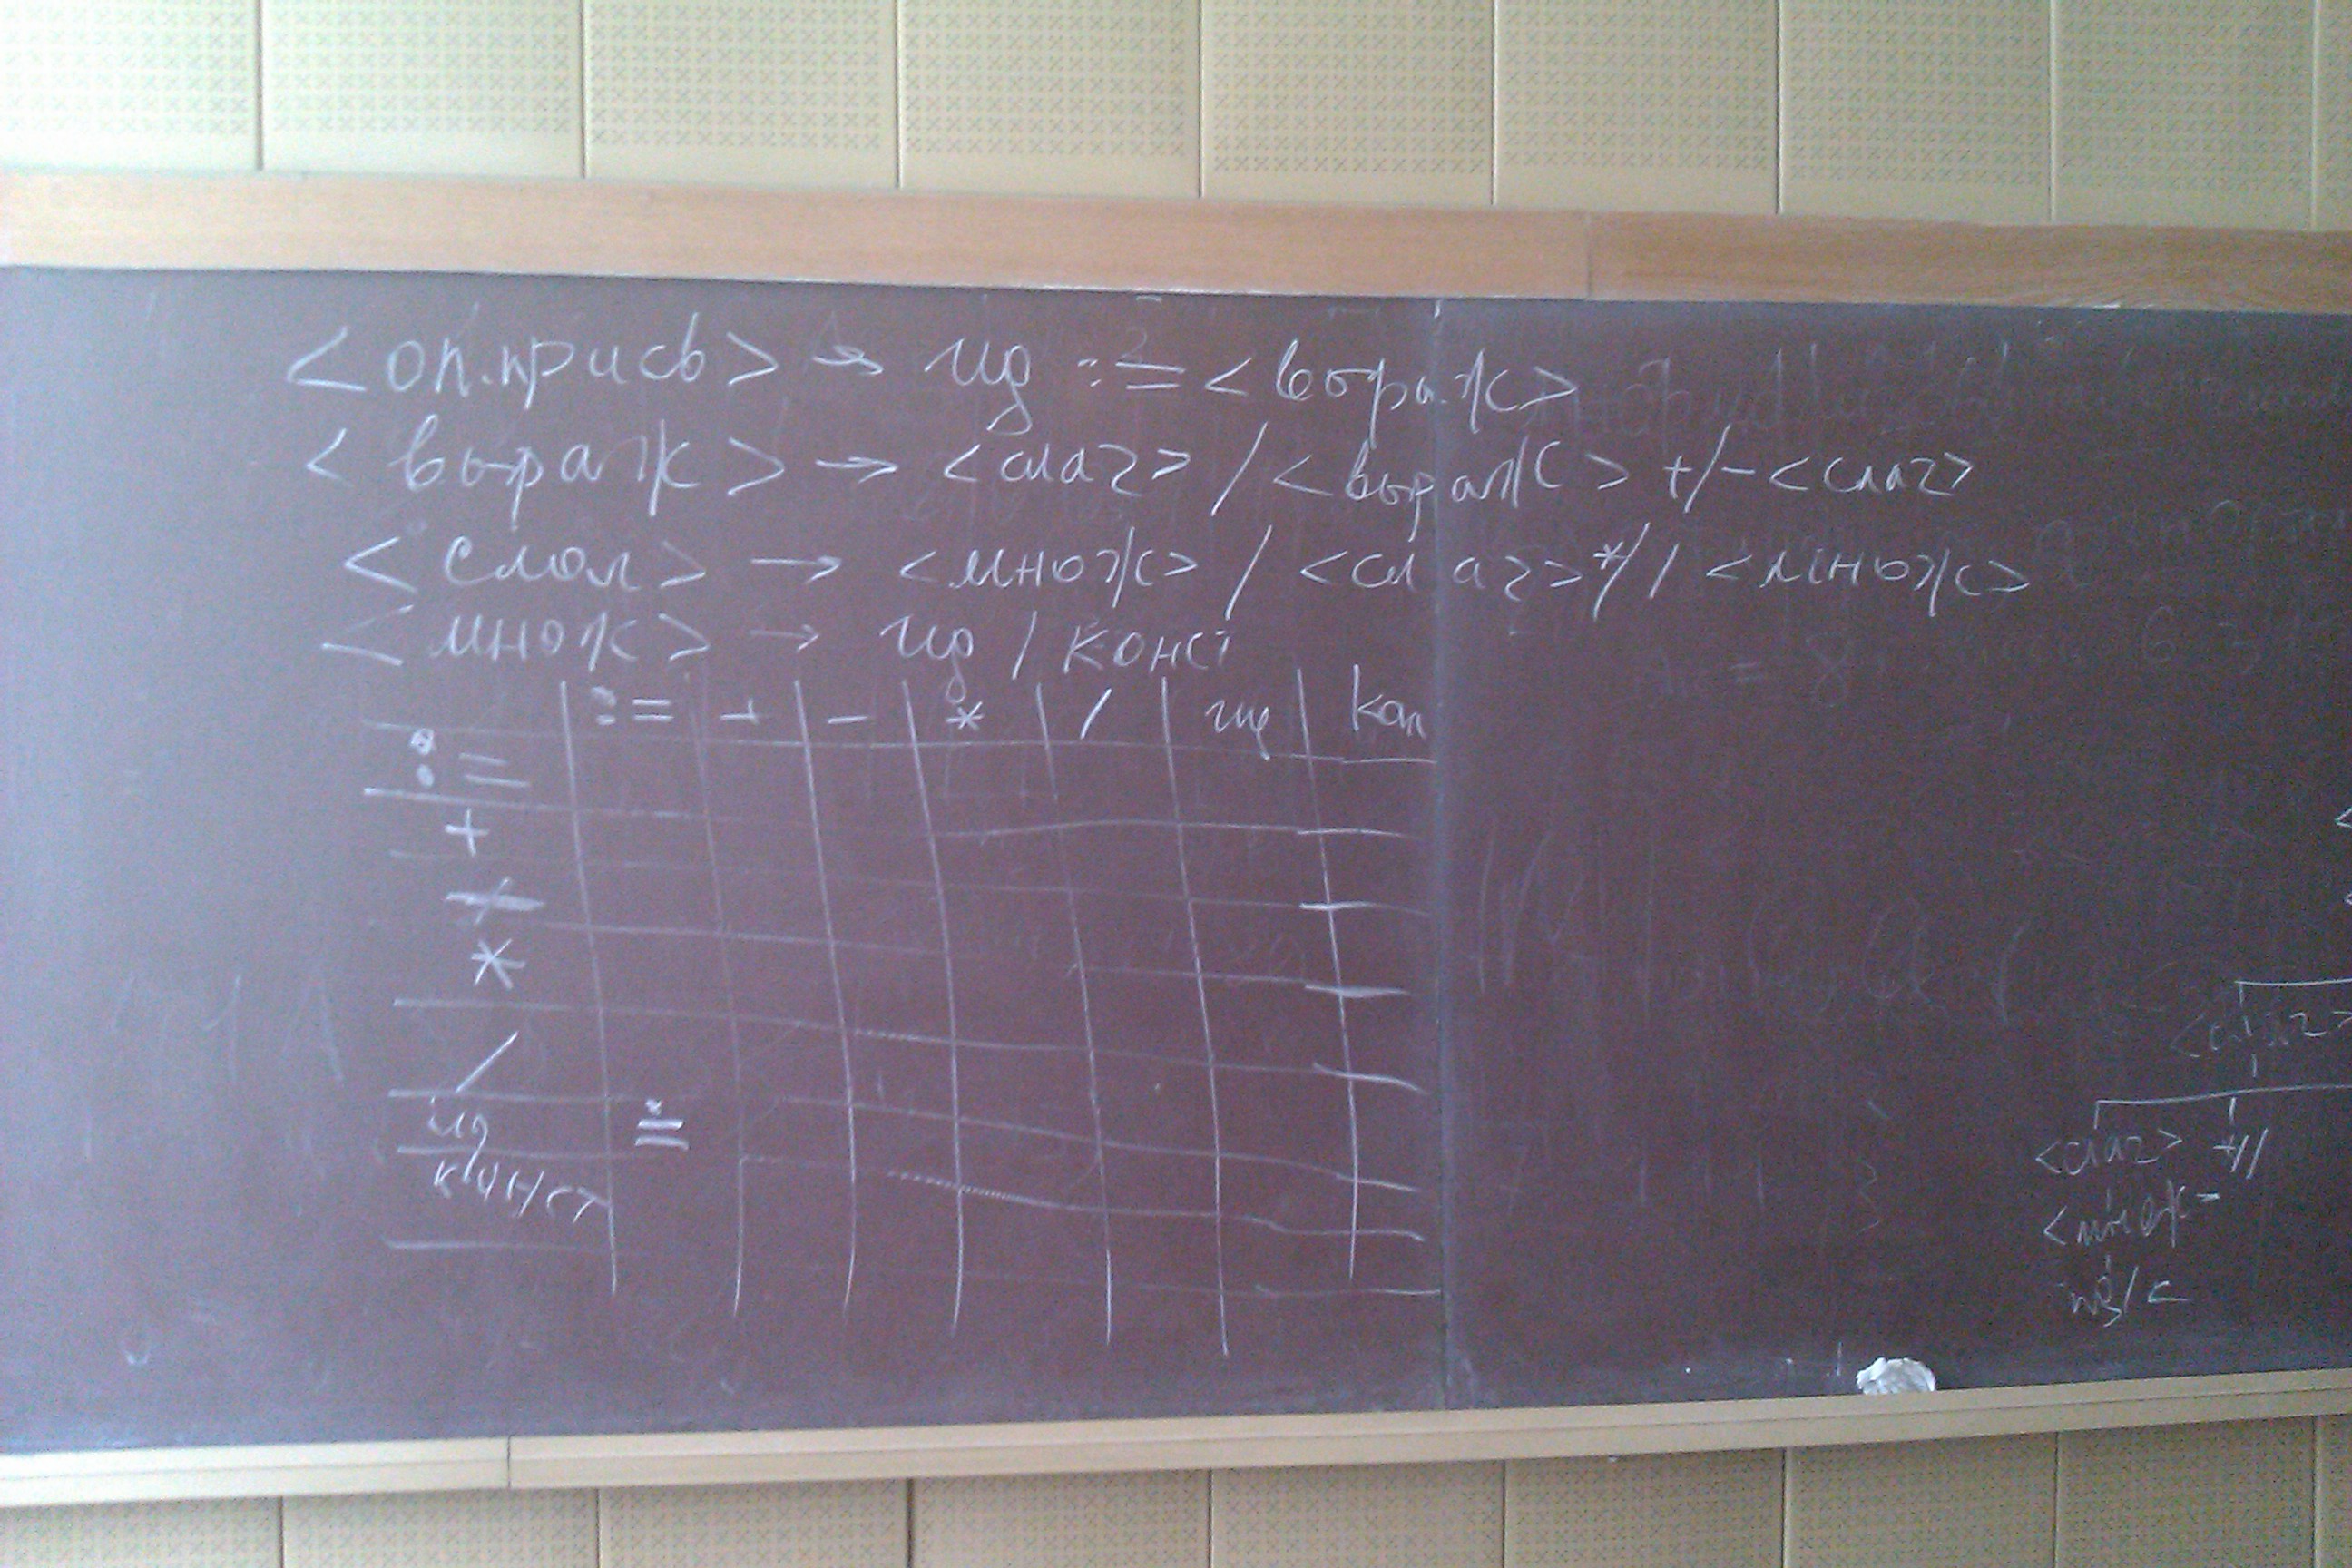 <оп.присв> → ид := <выраж>
<выраж> → <слаг> / <выраж> +/- <слаг>
<слаг> → <множ> / <слаг> */ / <множ>
<множ> → ид / конст
:= + - * / ид кон
:=
+
*
/
ид ≐
конст
<слаг>
<слаг> */
<множ>
ид/с